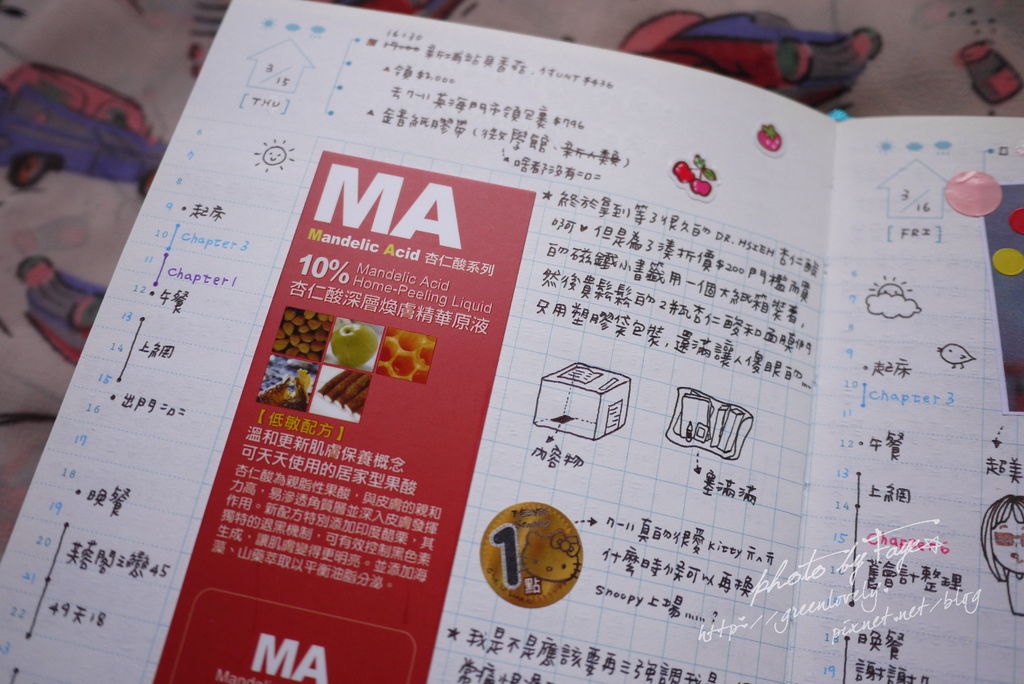 16:30
新埔站身書苑，付UNT $436
▲領$2,000
去7-11英海門市領包裹 $796
▲錄音紙膠帶
啥都沒有=口=
3/15
[THU]
6
7
8
9 • 起床
10 Chapter 3
11 Chapter 1
12 • 午餐
13
14 上網
15 • 出門 =口=
16
17
18 • 晚餐
19
20 芙蓉閣之戀45
21
22 49天18
MA
Mandelic Acid 杏仁酸系列
10% Mandelic Acid
Home-Peeling Liquid
杏仁酸深層煥膚精華原液
【低敏配方】
溫和更新肌膚保養概念
可天天使用的居家型果酸
杏仁酸為親脂性果酸，與皮膚的親和
力高，易滲透角質層並深入皮膚發揮
作用。新配方特別添加印度醋栗，其
獨特的退黑機制，可有效控制黑色素
生成，讓肌膚變得更明亮。並添加海
藻、山藥萃取以平衡油脂分泌。
MA
★ 終於拿到等了很久的 DR. HSIEH 杏仁酸
呵呵♥但是為了湊折價$200門檻而買
的磁鐵小書籤用一個大紙箱裝著，
然後貴鬆鬆的2瓶杏仁酸和面膜們
只用塑膠袋包裝，還滿讓人傻眼的...
內容物
塞滿滿
1
點
7-11真的很愛kitty
什麼時候可以再換
snoopy上場......?
★ 我是不是應該要再三強調我是
3/16
[FRI]
6
7
8
9 • 起床
10 Chapter 3
11
12 • 午餐
13
14 上網
15 Chapter 6
舊會計整理
18 晚餐
19 謝謝
超美
photo by Faye☆
http://greenlovely.
pixnet.net/blog